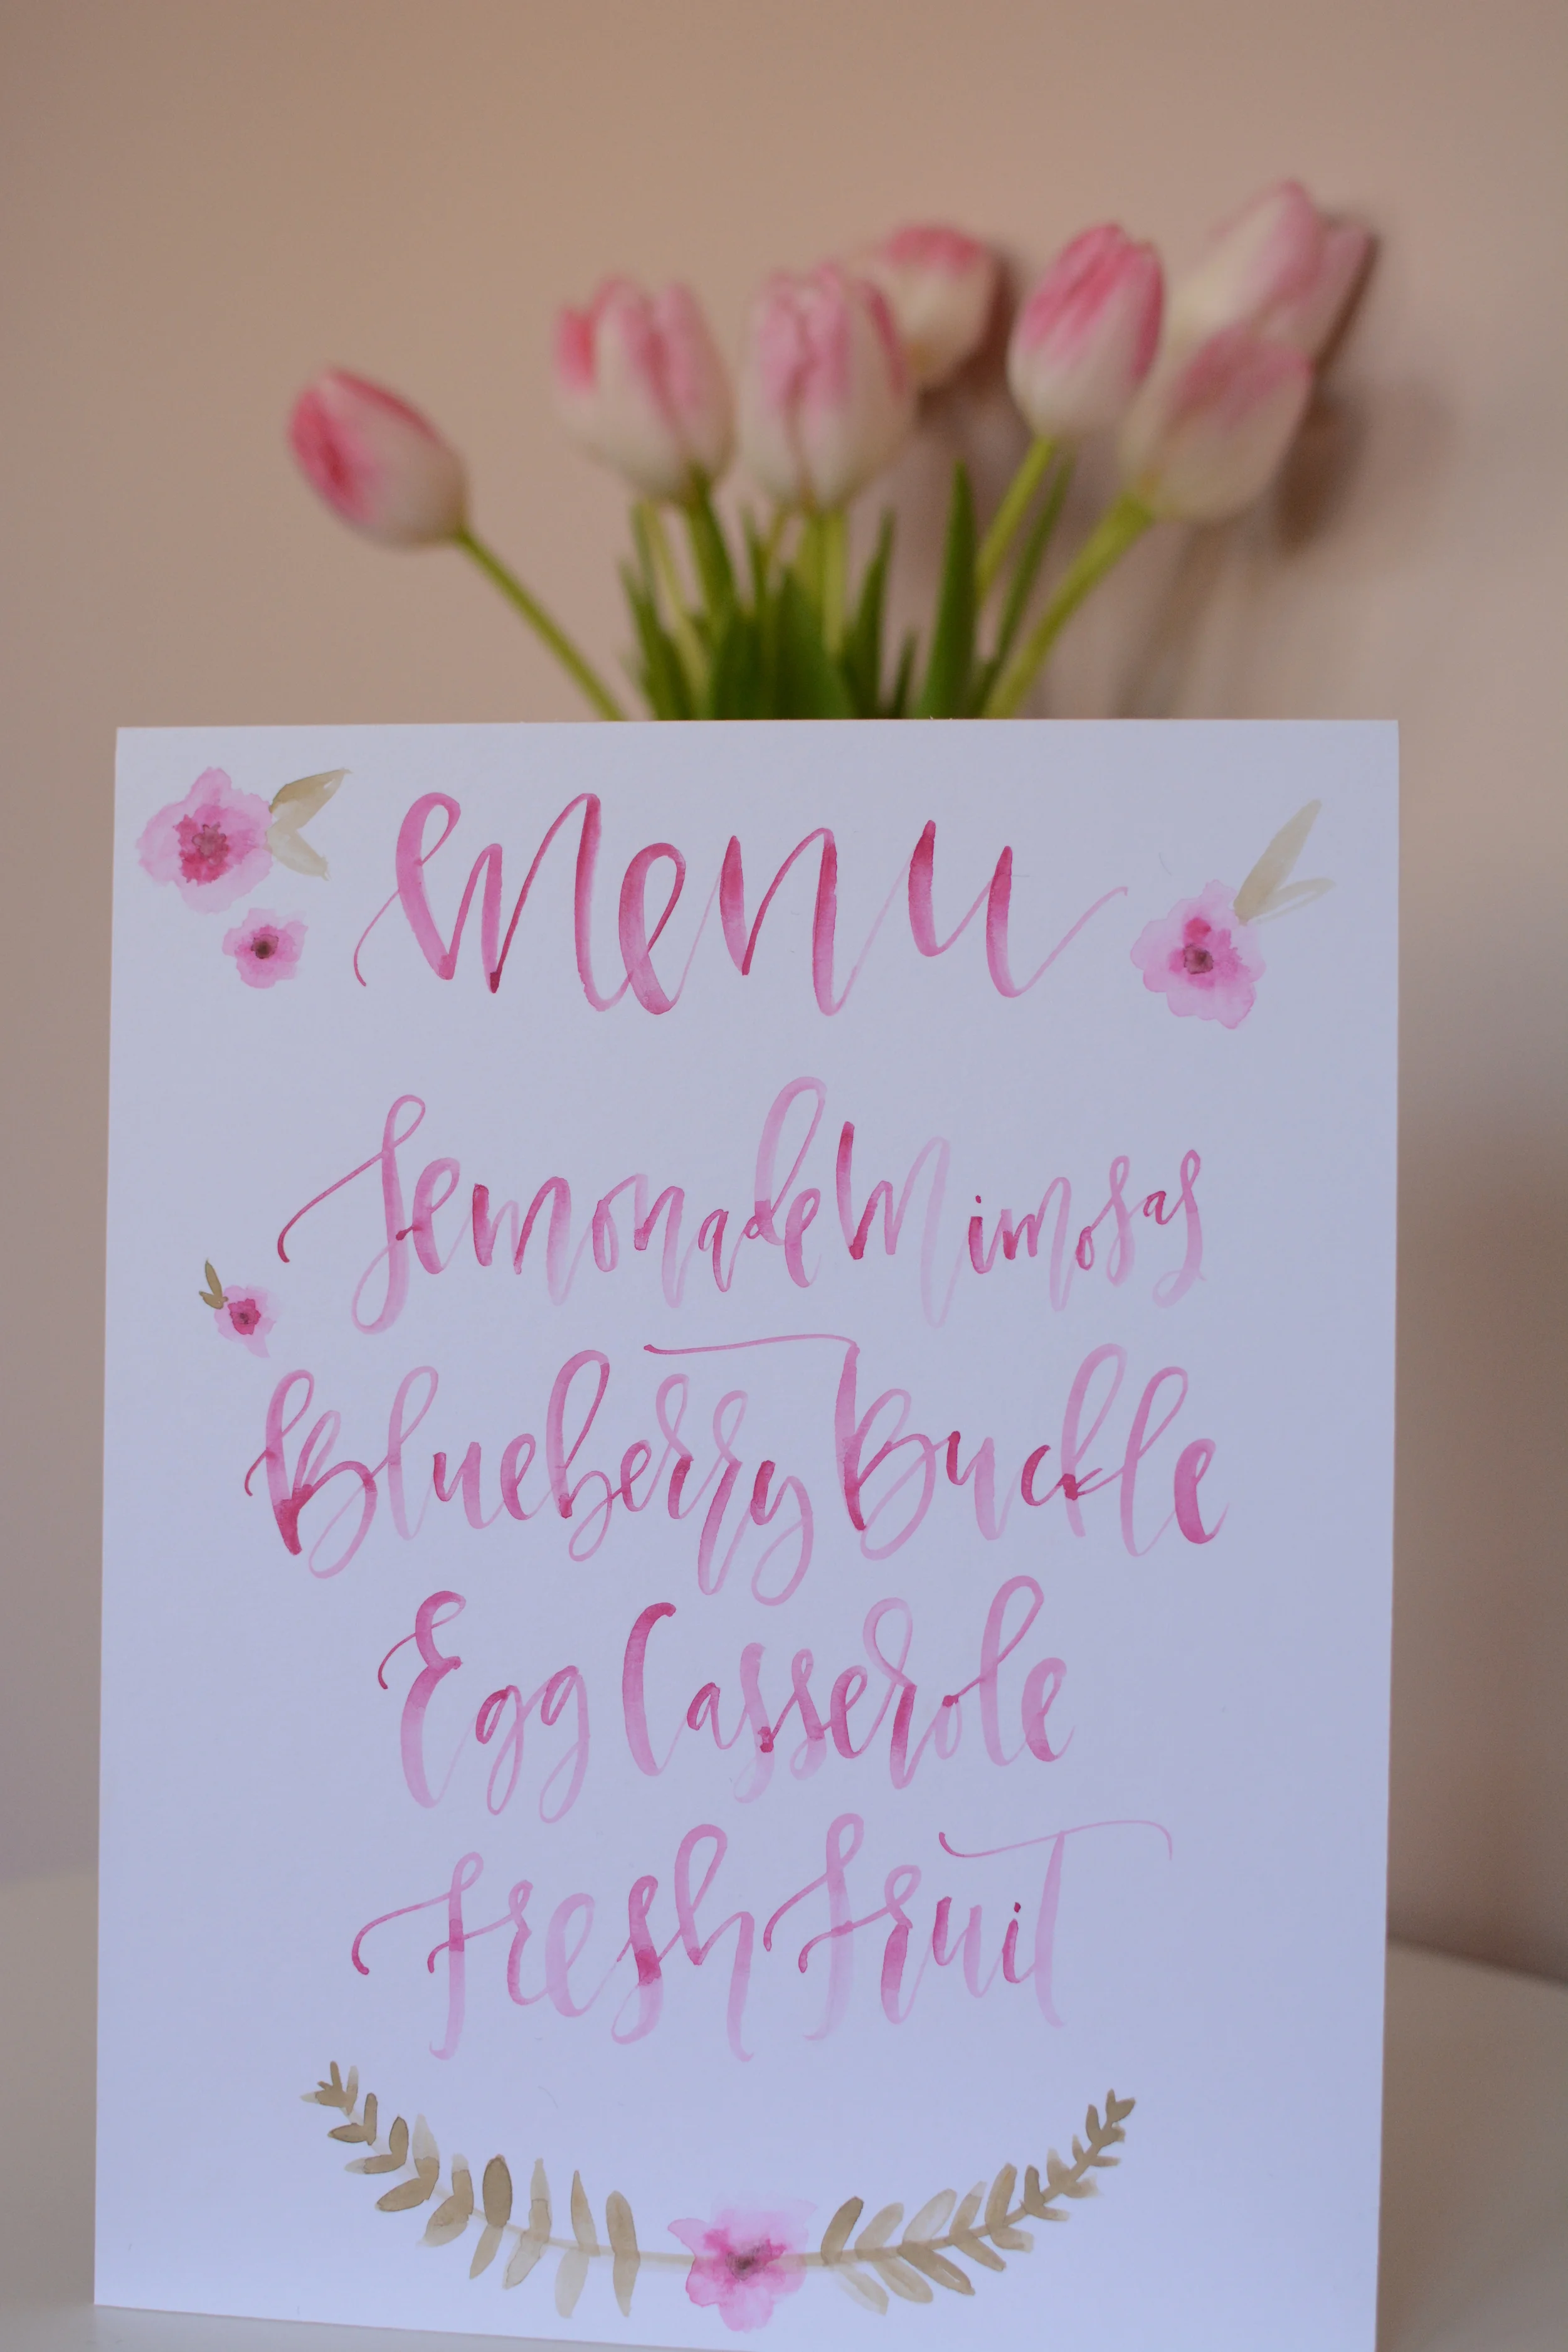 Menu
Lemonade Mimosas
Blueberry Buckle
Egg Casserole
Fresh Fruit